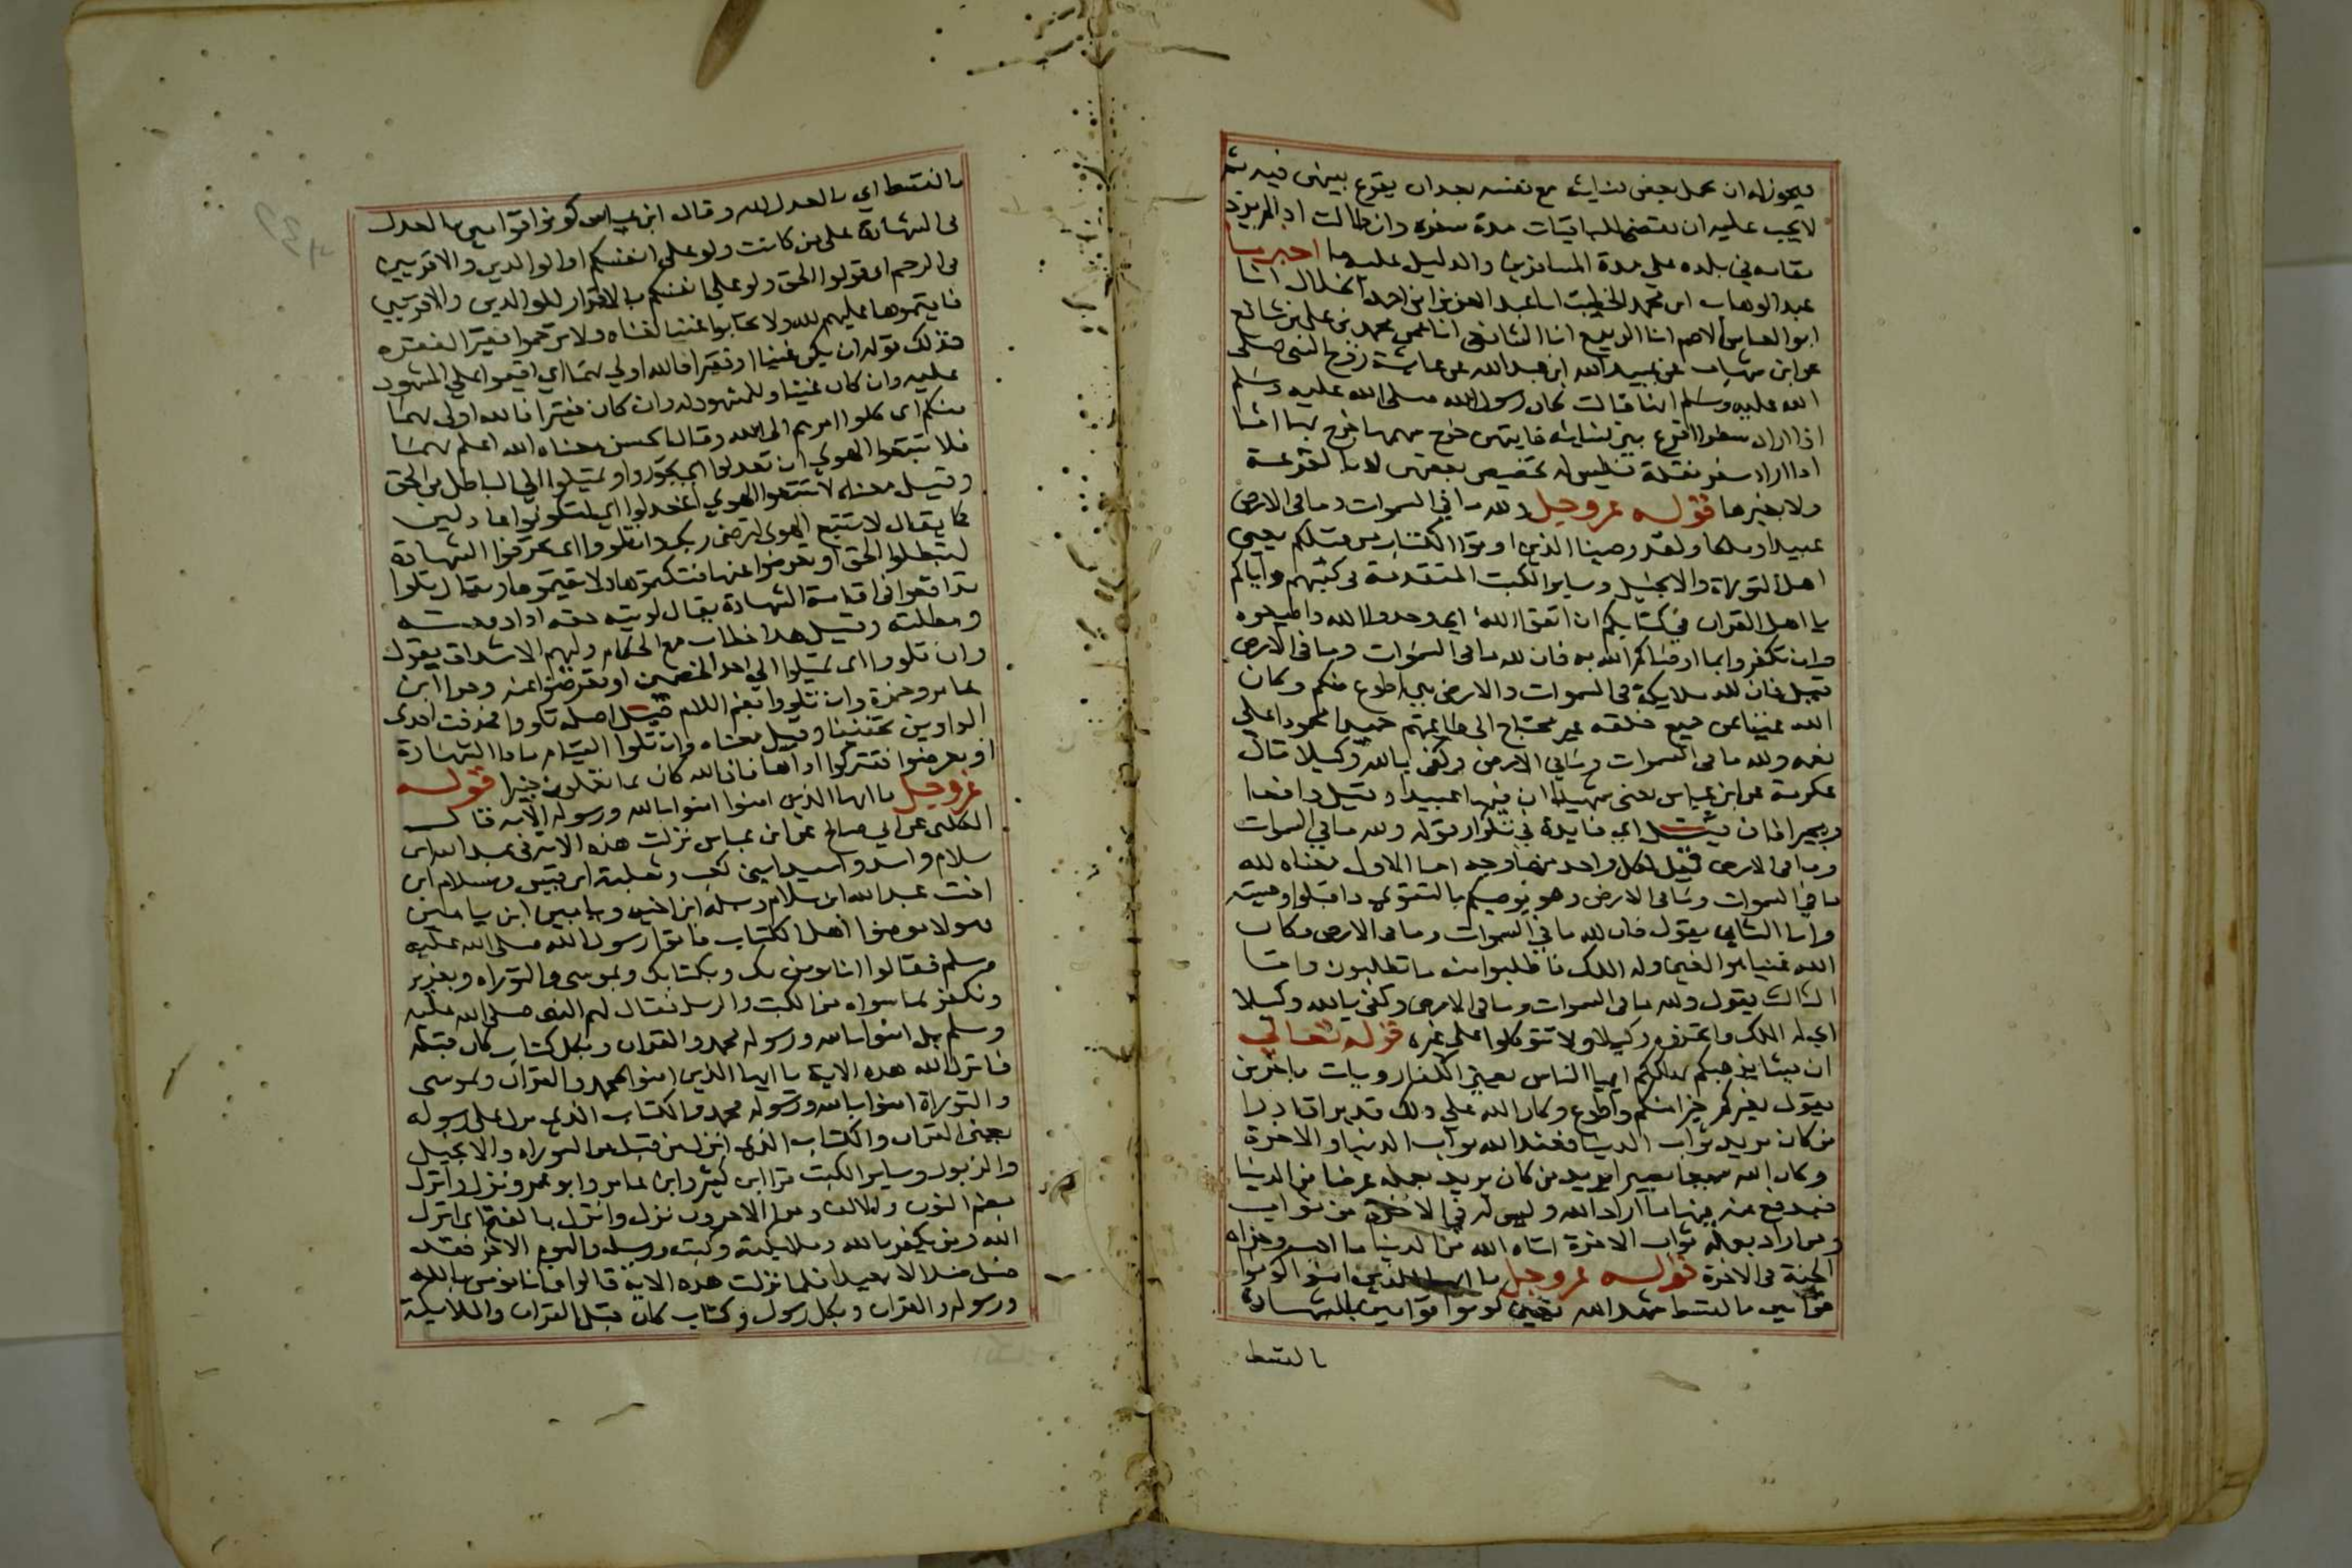 فيجوز له ان يحمل بعض نسائه مع نفسه بعد ان يقرع بينهن فيه ثم
لا يجب عليه ان يقضي للباقيات مدة سفره وان طالت اذا لم يزد
مقامه في بلده على مدة المسافرين والدليل عليه ما اخبرنا
عبد الوهاب ابن محمد الخطيب انا عبد العزيز ابن احمد الخلال انا
ابو العباس الاصم انا الربيع انا الشافعي انا عمى محمد بن علي بن شافع
عن ابن شهاب عن عبيد الله ابن عبد الله عن عايشة زوج النبي صلى
الله عليه وسلم انها قالت كان رسول الله صلى الله عليه وسلم
اذا اراد سفرا اقرع بين نسائه فايتهن خرج سهمها خرج بها اما
اذا اراد سفر نقلة فليس له تخصيص بعضهن لا بالقرعة
ولا بغيرها قوله عز وجل ولله ما في السموات وما في الارض
عبيدا وملكا ولقد وصينا الذين اوتوا الكتاب من قبلكم يعني
اهل التوراة والانجيل وساير الكتب المتقدمة في كتبهم واياكم
يا اهل القران في كتابكم ان اتقوا الله اي وحدوا الله واطيعوه
وان تكفروا بما اوصاكم الله به فان لله ما في السموات وما في الارض
قيل فان لله ملايكة في السموات والارض هي اطوع منكم وكان
الله غنيا عن جميع خلقه غير محتاج الى طاعتهم حميدا محمودا على
نعمه ولله ما في السموات وما في الارض وكفى بالله وكيلا قال
عكرمة عن ابن عباس يعنى شهيدا ان فيها عبيدا وقيل دافعا
ومجيرا فان قيل اي فايدة في تكرار قوله ولله ما في السموات
وما في الارض قيل لكل واحد منها وجه اما الاول معناه لله
ما في السموات وما في الارض وهو يوصيكم بالتقوى فاقبلوا وصيته
واما الثاني يقول فان لله ما في السموات وما في الارض وكان
الله غنيا هو الغني وله الملك فاطلبوا منه ما تطلبون واما
الثالث يقول ولله ما في السموات وما في الارض وكفى بالله وكيلا
اي له الملك واتخذوه وكيلا ولا تتوكلوا على غيره قوله تعالى
ان يشا يذهبكم يهلككم ايها الناس يعني الكفار ويات باخرين
يقول بغيركم خير منكم واطوع وكان الله على ذلك قديرا قادرا
من كان يريد ثواب الدنيا فعند الله ثواب الدنيا والاخرة
وكان الله سميعا بصيرا يريد من كان يريد بعمله عرضا من الدنيا
فيدفع عنه فيها ما اراد الله وليس له في الاخرة من ثواب
ومن اراد بعمله ثواب الاخرة اتاه الله من الدنيا ما احب وجزاه
الجنة في الاخرة قوله عز وجل يا ايها الذين امنوا كونوا
قوامين بالقسط شهدا لله يعني كونوا قوامين بالشهادة
بالقسط
بالقسط اي بالعدل لله وقال ابن عباس كونوا قوامين بالعدل
في الشهادة على من كانت ولو على انفسكم او الوالدين والاقربين
في الرحم اي قولوا الحق ولو على انفسكم بالاقرار للوالدين والاقربين
فاقيموها عليهم لله ولا تحابوا غنيا لغناه ولا ترحموا فقيرا لفقره
فذلك قوله ان يكن غنيا او فقيرا فالله اولى بهما اي اقيموا على المشهود
عليه وان كان غنيا وللمشهود له وان كان فقيرا فالله اولى بهما
منكم اي كلوا امرهم الى الله وقال الحسن معناه الله اعلم بهما
فلا تتبعوا الهوى ان تعدلوا اي تجوروا وتميلوا الى الباطل من الحق
وقيل معناه لا تتبعوا الهوى لتعدلوا اي لتكونوا عادلين
كما يقال لا تتبع الهوى لترضى ربك وان تلووا اي تحرفوا الشهادة
لتبطلوا الحق او تعرضوا عنها فتكتموها ولا تقيموها ويقال تلوا
تدافعوا في اقامة الشهادة يقال لويته حقه اذا دفعته
ومطلته وقيل هذا خطاب مع الحكام وليهم الاشداق يقول
وان تلووا اي تميلوا الى احد الخصمين او تعرضوا عنه وقرا ابن
عامر وحمزة وان تلووا بضم اللام قيل اصله تلووا فحذفت احدى
الواوين تخفيفا وقيل معناه وان تلوا القيام باداء الشهادة
او تعرضوا فتتركوا اداها فان الله كان بما تعملون خبيرا قوله
عز وجل يا ايها الذين امنوا امنوا بالله ورسوله الآية قال
الكلبي عن ابي صالح عن ابن عباس نزلت هذه الآية في عبد الله ابن
سلام واسد واسيد ابني كعب وثعلبة ابن قيس وسلام ابن
اخت عبد الله ابن سلام وسلمة ابن اخيه ويامين ابن يامين
هولا مومنوا اهل الكتاب فاتوا رسول الله صلى الله عليه
وسلم فقالوا انا نومن بك وبكتابك وبموسى والتوراة وبعزير
ونكفر بما سواه من الكتب والرسل فقال لهم النبي صلى الله عليه
وسلم بل امنوا بالله ورسوله محمد والقران وبكل كتاب كان قبله
فانزل الله هذه الاية يا ايها الذين امنوا بمحمد والقران وبموسى
والتوراة امنوا بالله ورسوله محمد والكتاب الذي نزل على رسوله
يعني القران والكتاب الذي انزل من قبل من التوراة والانجيل
والزبور وساير الكتب قرا ابن كثير وابن عامر وابو عمرو نزل وانزل
بضم النون والالف وقرا الاخرون نزل وانزل بالفتح اي انزل
الله ومن يكفر بالله وملايكته وكتبه ورسله واليوم الاخر فقد
ضل ضلالا بعيدا فلما نزلت هذه الاية قالوا فانا نومن بالله
ورسوله والقران وبكل رسول وكتاب كان قبل القران والملايكة